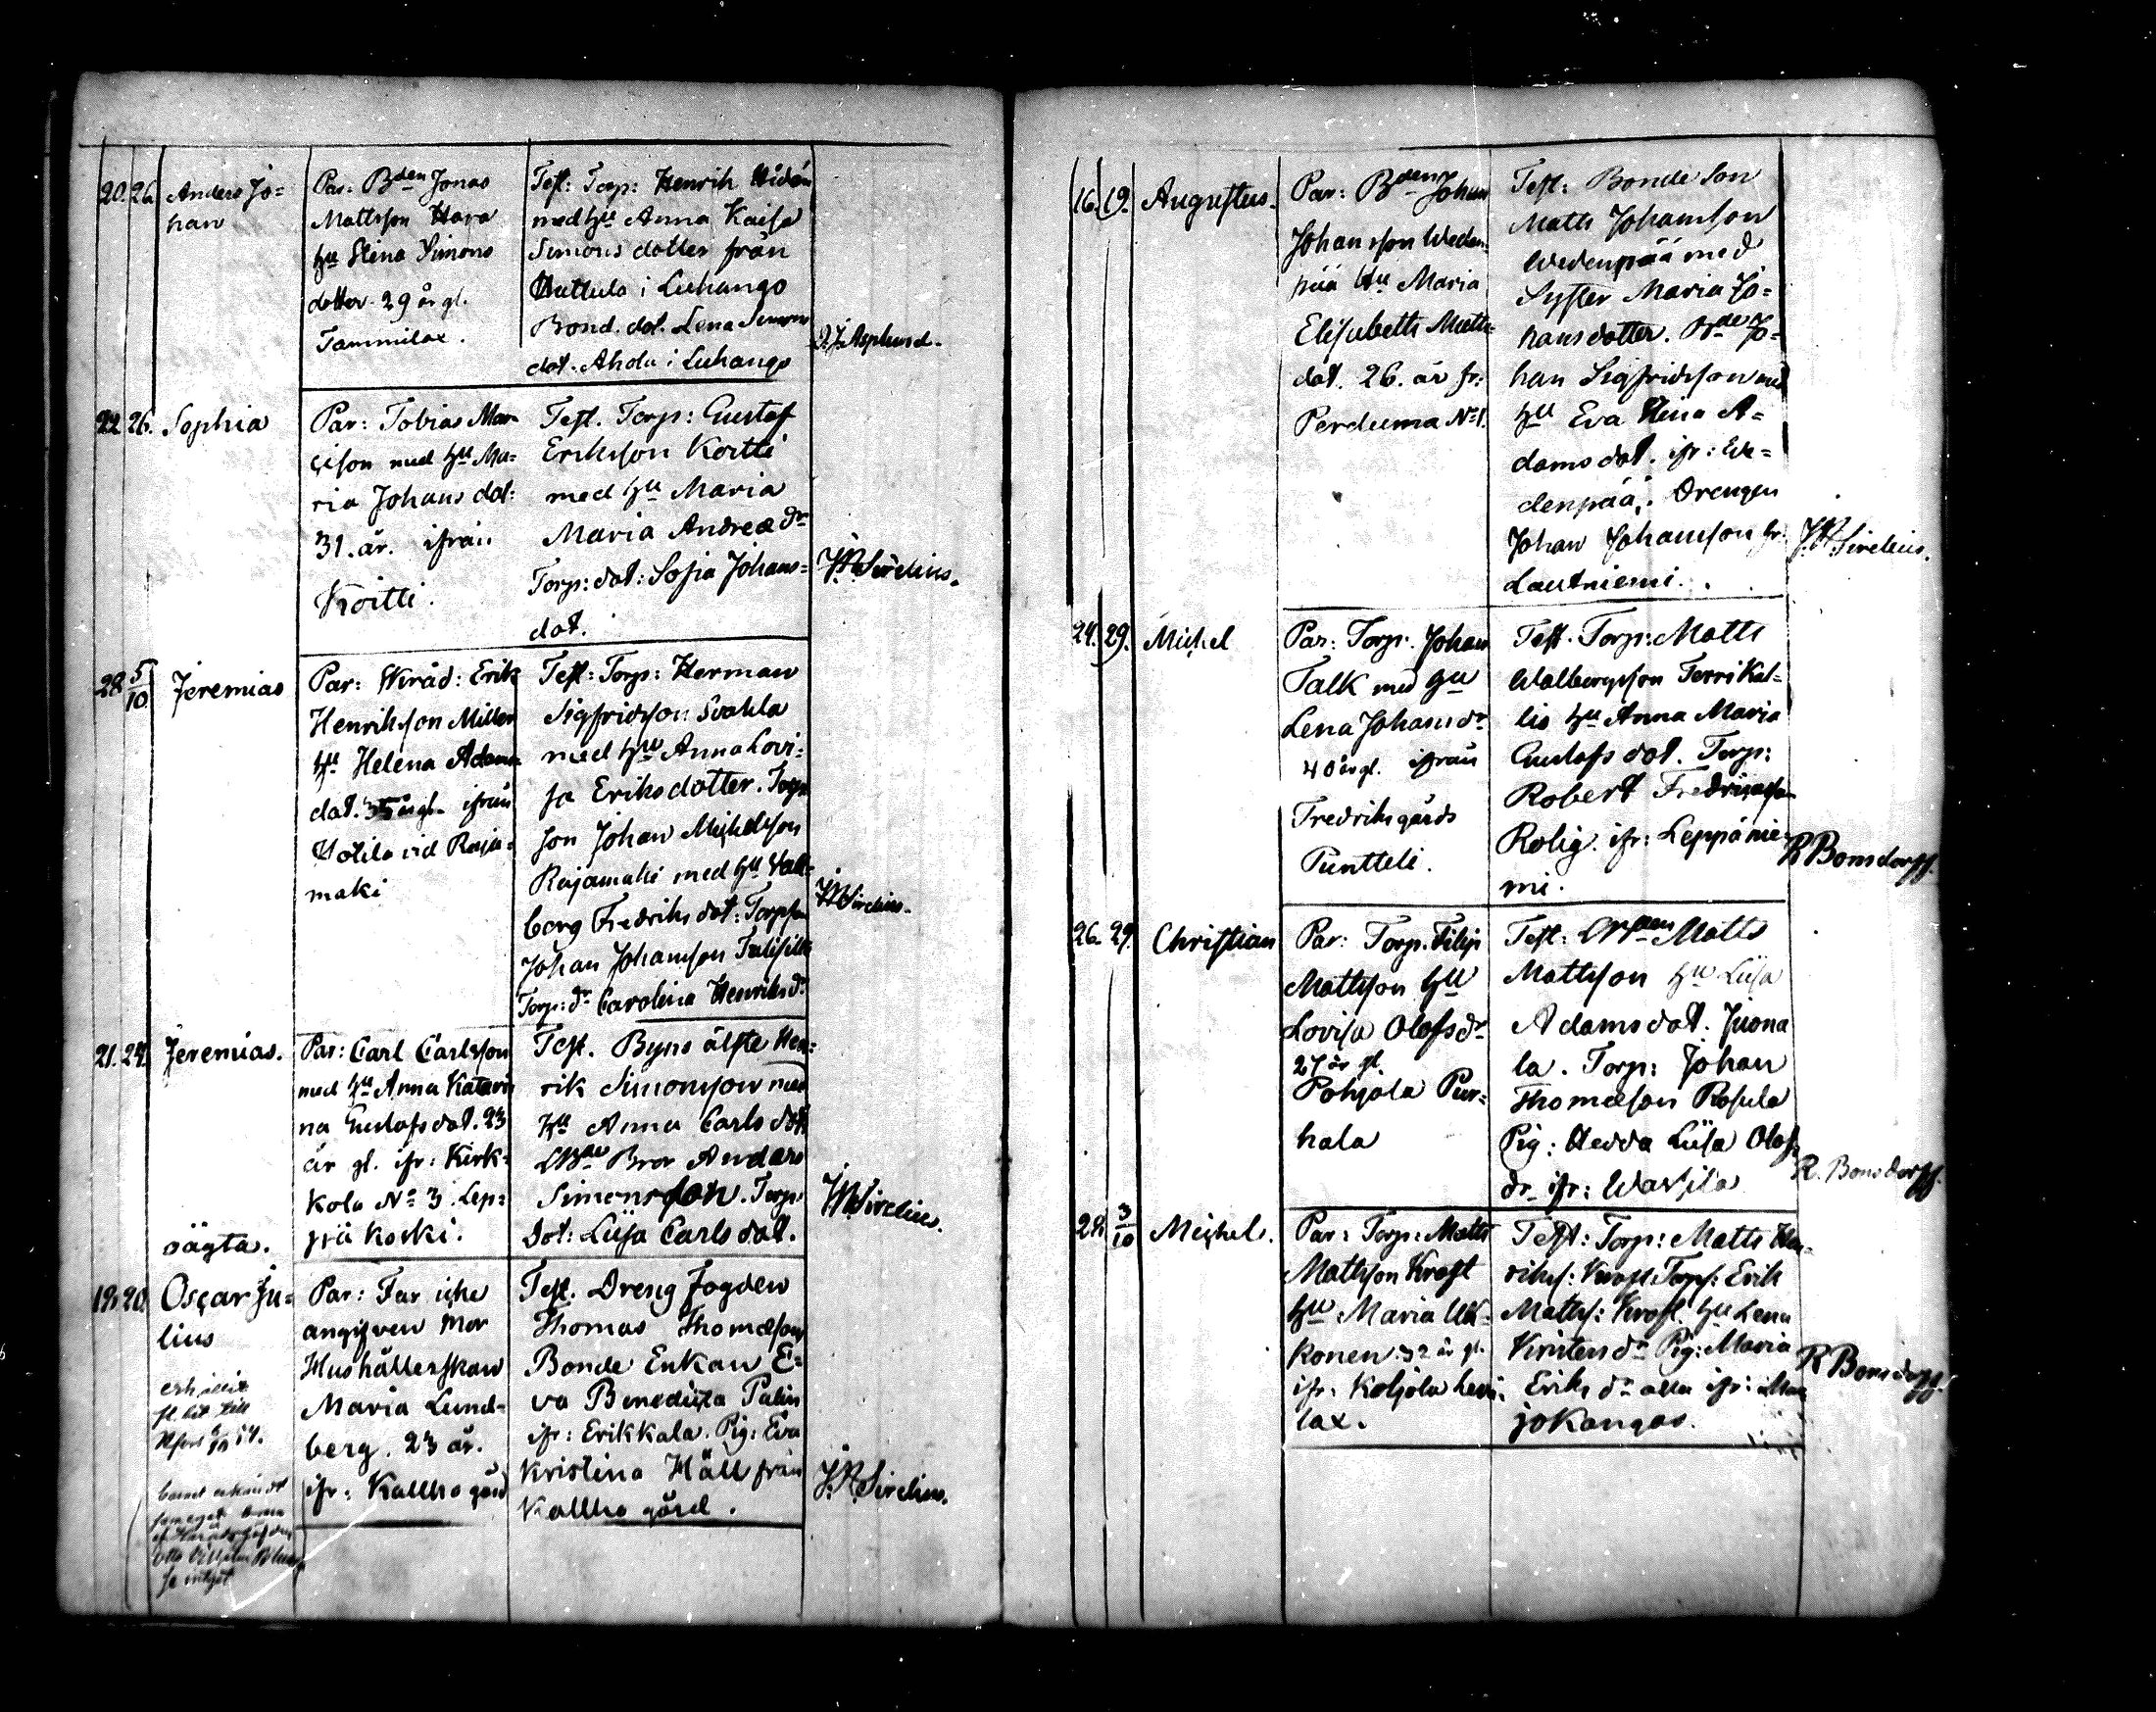 20. 26. Anders Jo=
han
Par: Bden Jonas
Mattsson Hara
hu Stina Simons
dotter 29 år gl.
Tammilax.
Test: Torp: Henrik Hidén
med hu Anna Kaisa
Simons dotter från
Hattula i Luhango
Bond. dot. Lena Simons
dot. Ahola i Luhango
Asplund.
22 26. Sophia
Par: Tobias Mar=
çison med hu Ma=
ria Johans dot:
31. år. ifrån
Koitti.
Test. Torp: Gustaf
Eriksson Koitti
med hu Maria
Maria Andreæ dr
Torp: dot: Sofia Johans=
dot.
Sirelius.
28 5/10 Jeremias
Par: Erik
Henriksson Miller
hu Helena Adams
dat. 35 år gl. ifrån
Hotila vid Raja=
maki
Test: Torp: Herman
Sigfridsson Svahla
med hu Anna Lovi=
sa Eriksdotter. Torp
son Johan Michelsson
Rajamaki med hu Val=
borg Fredriks dot: Torpson
Johan Johansson
Torp: dr Carolina Henriks dr
Sirelius.
21. 24. Jeremias.
oägta.
Par: Carl Carlsson
med hu Anna Katari
na Gustafs dot. 23
år gl. ifr: Kirk=
kola No 3. Lep=
pä koski.
Test. Byns älste Hen=
rik Simonsson med
hu Anna Carls dot.
Bror Anders
Simonsson. Torp.
dot: Liisa Carls dot.
Sirelius.
19. 20. Oscar Ju=
lius
Par: Far icke
angifven Mor
Hushållerskan
Maria Lund=
berg. 23 år.
ifr: Kallho gård
Test. Dreng Fogden
Thomas Thomæson
Bonde Enkan E=
va Benedicta Palin
ifr: Erikkala. Pig: Eva
Kristina Häll från
Kallho gård.
Sirelius.
16. 19. Augustus.
Par: Bden Johan
Johansson Weden
pää hu Maria
Elisabeth Matts
dot. 26. år fr:
Perduma No 1.
Test: Bonde Son
Matts Johansson
Wedenpää med
Syster Maria Jo=
hans dotter. Bde Jo=
han Sigfridsson med
hu Eva Stina A=
dams dot. ifr: We=
denpää. Drengen
Johan Johansson fr:
Lautniemi.
Sirelius.
24. 29. Michel
Par: Torp. Johan
Talk med hu
Lena Johans dr
40 år gl. ifrån
Fredriksgårds
Puntteli.
Test. Torp: Matts
Walbergsson Terri Kal=
lio hu Anna Maria
Gustafs dot. Torp:
Robert Fredricksson
Rolig. ifr: Leppänie
mi.
R Bonsdorff.
26. 29. Christian
Par: Torp. Filip
Mattsson hu
Lovisa Olofs dr
27 år gl.
Pohjola Pur=
hala
Test: Matts
Mattsson hu Liisa
Adams dot. Juona
la. Torp: Johan
Thomæson Rosula
Pig: Hedda Liisa Olofs
dr ifr: Warsila
R. Bonsdorff.
28. 3/10 Michel.
Par: Torp: Matts
Mattsson Kraft
hu Maria Uk=
konen. 32 år gl.
ifr: Koljola Levä=
lax.
Test: Torp: Matts Hen=
riks: Kraft. Torps: Erik
Matts: Kraft. hu Lena
Kristers dr Pig: Maria
Eriks dr alla ifr: Mar
jokangas.
R Bonsdorff.